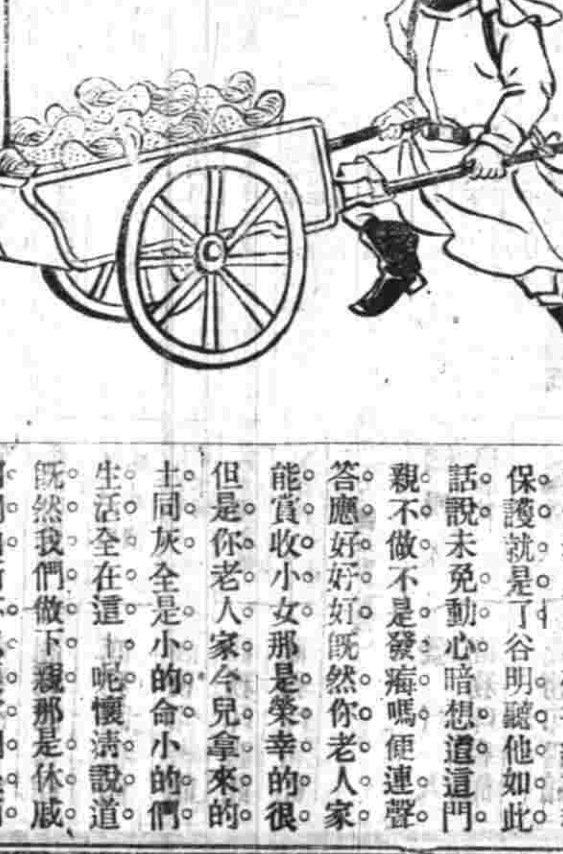 保護就是了谷明聽他如此
話說未免動心暗想道這門
親不做不是發嗎便連聲
答應好好好既然你老人家
能賞收小女那是榮幸的很
但是你老人家今兒拿來的
土同灰全是小的命小的們
生活全在這上呢懷清說道
既然我們做下親那是休戚